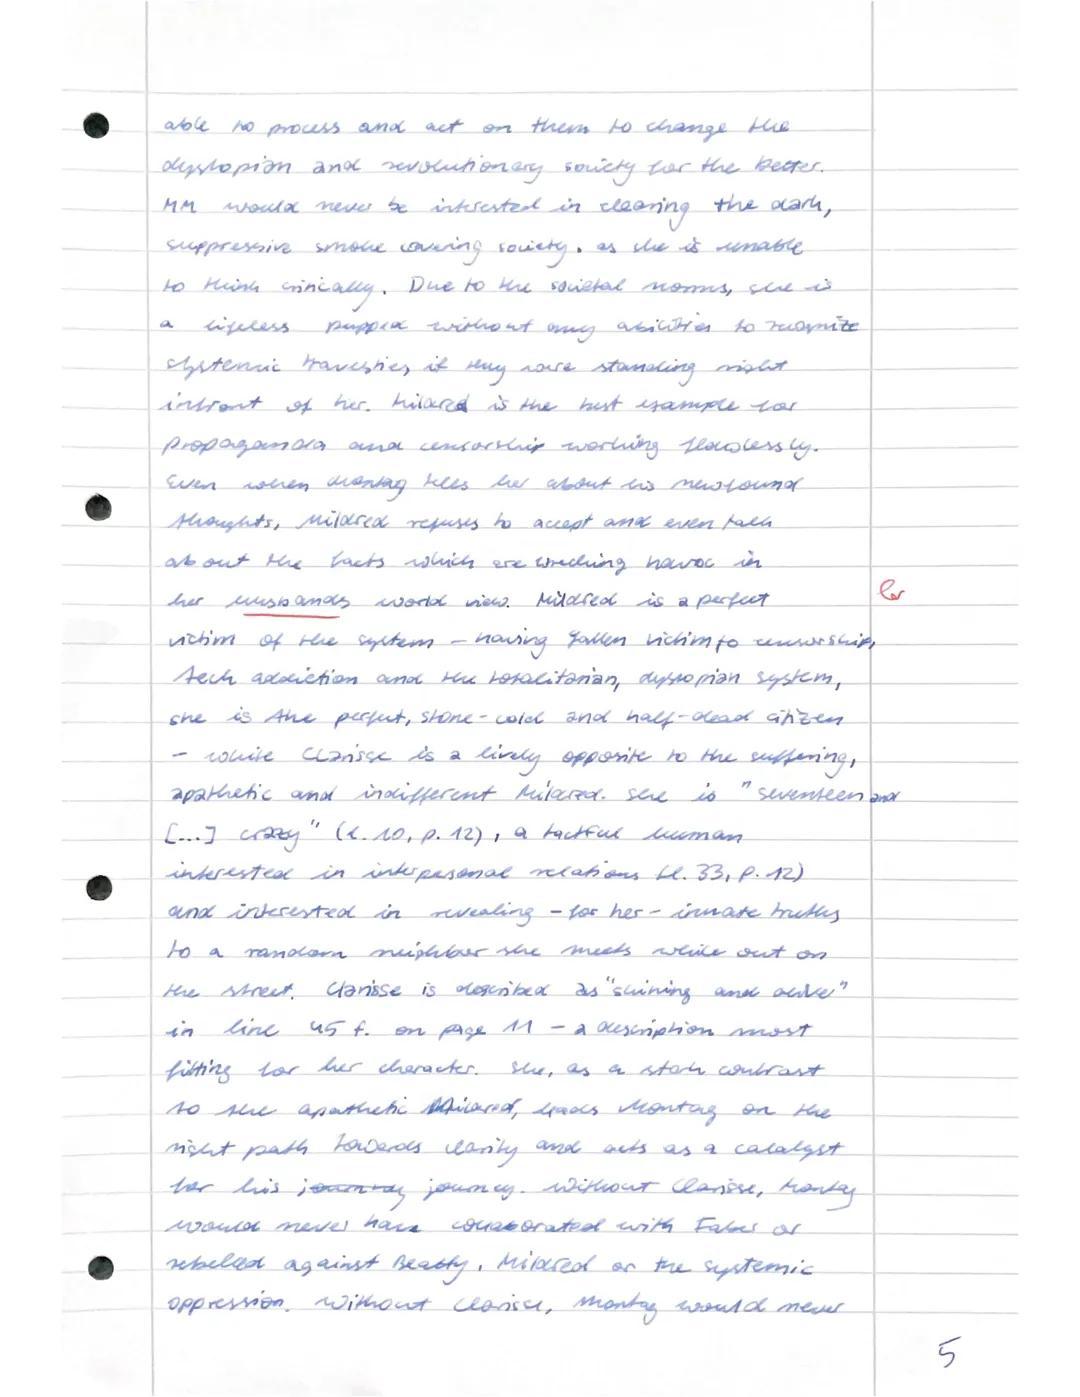 able to process and act on them to change the
dystopian and revolutionary society for the better.
MM would never be interested in clearing the dark,
suppressive smoke covering society, as she is unable
to think critically. Due to the societal norms, she is
a lifeless puppet without any abilities to recognize
systemic travesties, if they were standing right
infront of her. Mildred is the best example for
propaganda and censorship working flawlessly.
Even when Montag tells her about his newfound
thoughts, Mildred refuses to accept and even talk
about the facts which are wrecking havoc in
her husbands world view. Mildred is a perfect
victim of the system – having fallen victim to censorship,
tech addiction and the totalitarian, dystopian system,
she is the perfect, stone-cold and half-dead citizen
– while Clarisse is a lively opposite to the suffering,
apathetic and indifferent Mildred. She is "seventeen and
[...] crazy" (l. 10, p. 12), a tactful human
interested in interpersonal relations (l. 33, p. 12)
and interested in revealing – for her – innate truths
to a random neighbor she meets while out on
the street. Clarisse is described as "shining and alive"
in line 45 f. on page 11 – a description most
fitting for her character. She, as a stark contrast
to the apathetic Mildred, leads Montag on the
right path towards clarity and acts as a catalyst
for his journey. Without Clarisse, Montag
would never have collaborated with Faber or
rebelled against Beatty, Mildred or the systemic
oppression. Without Clarisse, Montag would never
5